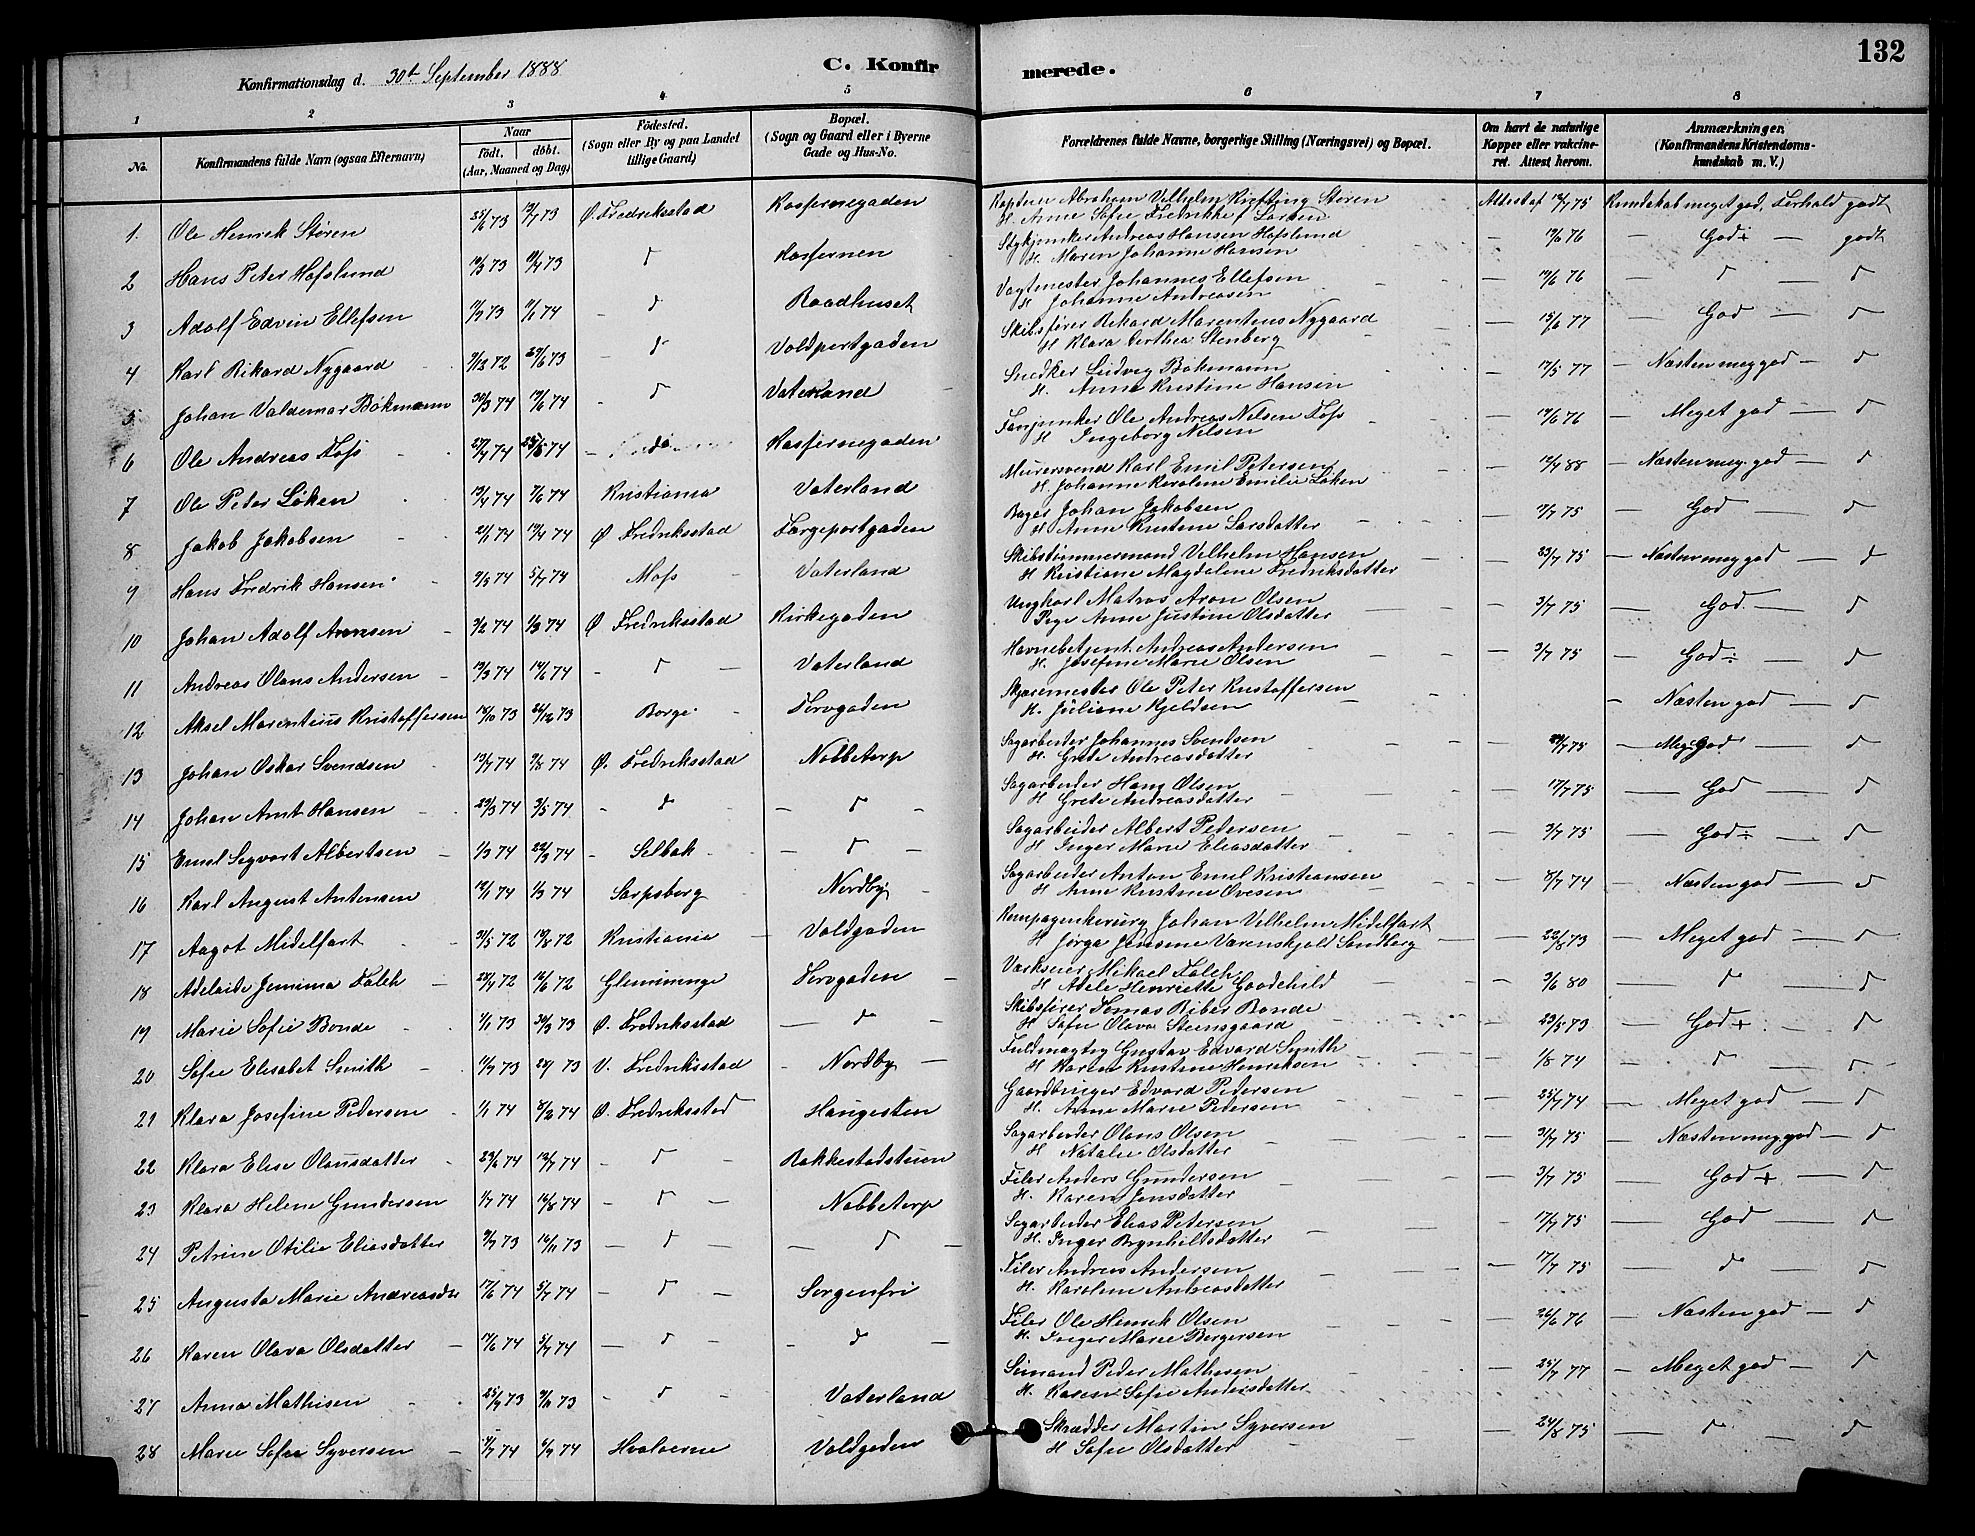 132
Konfirmationsdag d. 30te September 1888 C. Konfirmerede.
1 2 3 4 5 6 7 8
No. Konfirmandens fulde Navn (ogsaa Efternavn) Naar født, døbt. (Aar, Maaned og Dag) Fødested. (Sogn eller By og paa Landet tillige Gaard) Bopæl. (Sogn og Gaard eller i Byerne Gade og Hus-No. Forældrenes fulde Navne, borgerlige Stilling (Næringsvei) og Bopæl. Om havt de naturlige Kopper eller vakcineret. Attest herom. Anmærkninger. (Konfirmandens Kristendomskundskab m. V.)
1. Ole Henrik Støren 25/6 73 13/7 73 Ø. Fredriksstad Kasernegaden Kaptein Abraham Vilhelm Støren H. Anne Sofie Fredrikke f Larsen Attestat 75 Kundskab meget god, Forhold godt
2 Hans Peter Hafslund 73 73 d Kasernen Stykjunker Andreas Hansen Hafslund H. Maren Johanne Hansen 76 God ÷ godt
3 Adolf Edvin Ellefsen 73 74 d Raadhuset Vagtmester Johannes Ellefsen H Johanne Andreasen 76 d d
4 Karl Rikard Nygaard 9/12 72 29/6 73 d Voldportgaden Skibsfører Rikard Marentius Nygaard H Klara Dorthea Stenberg 15/6 77 God d
5 Johan Valdemar Bökmann 30/3 74 74 d Vaterland Snedker Ludvig Bökmann H. Anne Kristine Hansen 17/5 77 Næsten meg god d
6 Ole Andreas Foss 27/4 74 25/5 74 do Kasernegaden Fanejunker Ole Andreas Nilsen Foss H Ingeborg Nilsen 76 Meget god d
7 Ole Peter Løken 74 7/6 74 Kristiania Vaterland Murersvend Karl Emil Petersen H. Johanne Karoline Emilie Løken 88 Næsten meg. god d
8 Jakob Jakobsen 21/1 74 74 Ø Fredriksstad Færgeportgaden Bager Johan Jakobsen H Anne Kristine Larsdatter 75 God d
9 Hans Fredrik Hansen 74 5/7 74 Moss Vaterland Skibstømmermand Vilhelm Hansen H Kristiane Magdalene Fredriksdatter 23/7 75 Næsten meg god d
10 Johan Adolf Aronsen 3/2 74 1/3 74 Ø Fredriksstad Kirkegaden Ungkarl Matros Aron Olsen Pige Anne Justine Olsdatter 3/7 75 God d
11 Andreas Olaus Andersen 74 14/6 74 d Vaterland Havnebetjent Andreas Andersen H. Josefine Marie Olsen 3/7 75 God ÷ d
12 Aksel Marentius Kristoffersen 73 26/12 73 Borge Torvgaden Ole Peter Kristoffersen H. Juliane Kjeldsen Næsten god d
13 Johan Oskar Svendsen 13/7 74 9/8 74 Ø. Fredriksstad Nabbetorp Sagarbeider Johannes Svendsen H. Grete Andreasdatter 75 Meg. god d
14 Johan Arnt Hansen 29/3 74 3/5 74 d d Sagarbeider Hans Olsen H Grete Andreasdatter 17/7 75 God d
15 Emil Sigvart Albertsen 1/3 74 22/3 74 Selbak d Sagarbeider Albert Pedersen H Inger Marie Eliasdatter 3/7 75 God ÷ d
16 Karl August Antonsen 74 1/3 74 Sarpsborg Nordby Sagarbeider Anton Emil Kristiansen H Anne Kristine Ovesen 8/7 74 Næsten god d
17 Aagot Midelfart 31/5 72 72 Kristiania Voldgaden Kompagenikirurg Johan Vilhelm Midelfart H Jørga Jensine Varenskjold Sandberg 22/8 73 Meget god d
18 Adelaide Jemima Falch 72 16/6 72 Glemminge Torvgaden Værkseier Mikael Falch H Adele Henriette Goodchild 3/6 80 d d
19 Marie Sofie Bonde 1/1 73 30/3 73 Ø. Fredriksstad d Skibsfører Tomas Riber Bonde H Sofie Olava Steensgaard 23/5 73 God + d
20 Sofie Elisabet Smith 73 73 V. Fredriksstad Nordby Fuldmægtig Gustav Edvard Smith H Karen Kristine Henriksen 1/8 74 d d
21 Klara Josefine Pedersen 1/1 74 8/2 74 Ø. Fredriksstad Haugesten Gaardbruger Edvard Pedersen H. Anne Marie Pedersen 25/7 74 Meget god d
22 Klara Elise Olausdatter 23/6 74 74 d Rakkestadsteien Sagarbeider Olaus Olsen H Natalie Olsdatter 31/7 75 Næsten meg god d
23 Klara Helene Gundersen 1/7 74 16/8 74 d Nabbetorp Filer Anders Gundersen H. Karen Jensdatter 3/7 75 God + d
24 Petrine Otilie Eliasdatter 73 16/11 73 d d Sagarbeider Elias Petersen H. Inger Brynhiltsdatter 17/7 75 God d
25 Augusta Marie Andreasdtr 17/6 74 5/7 74 d Sorgenfri Filer Andreas Andersen H. Karoline Andreasdatter 17/7 75 d d
26 Karen Olava Olsdatter 17/6 74 5/7 74 d d Filer Ole Henrik Olsen H. Inger Marie Børgersen 26/6 76 Næsten god d
27 Anna Mathisen 25/9 73 73 d Vaterland Sømand Peder Mathisen H. Karen Sofie Andersdatter 25/7 77 Meget god d
28 Marie Sofie Syversen 74 74 Hvaløerne Voldgaden Skrædder Martin Syversen H Sofie Olsdatter 24/8 75 d d